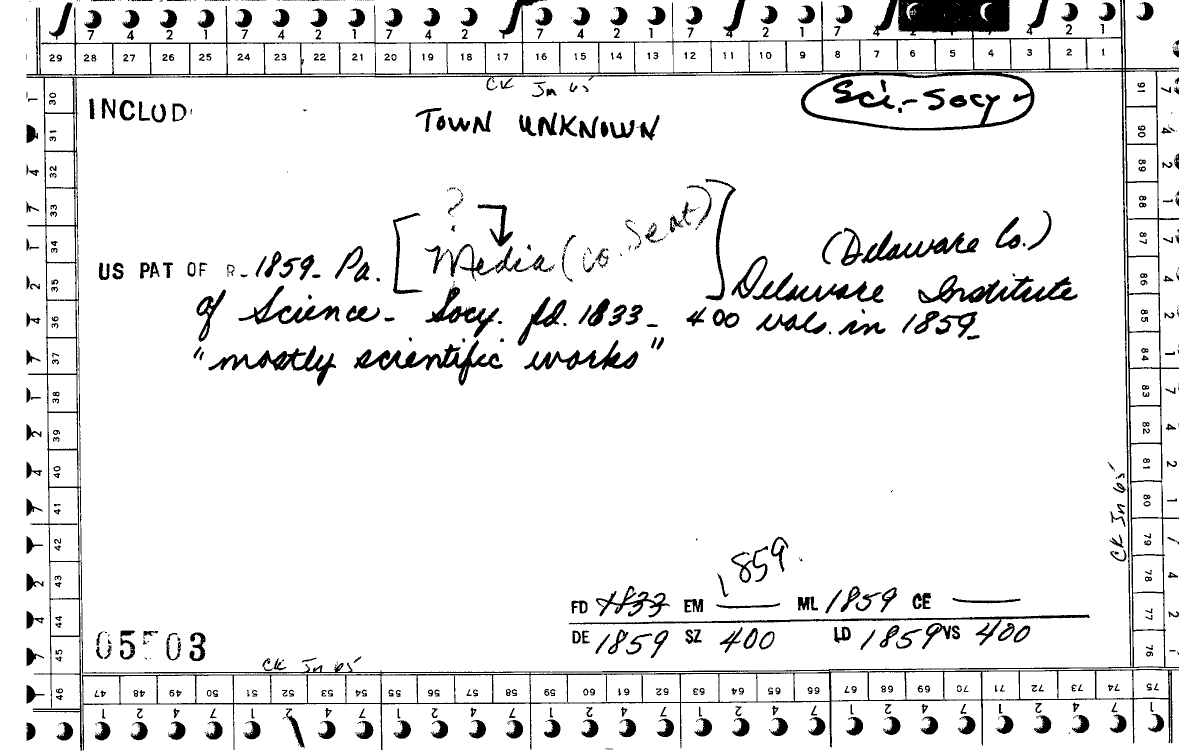 7 4 2 1 7 4 2 1 7 4 2 1 7 4 2 1 7 4 2 1 7 4 2 1 7 2 1
29 28 27 26 25 24 23 22 21 20 19 18 17 16 15 14 13 12 11 10 9 8 7 6 5 4 3 2 1
CK Jn 65
INCLUD
TOWN UNKNOWN
Sci.-Socy-
?
US PAT OF R-1859- Pa. [Media (Co. Seat)] (Delaware Co.)
Delaware Institute
of Science- Socy. fd. 1833- 400 vols. in 1859-
"mostly scientific works"
1859.
FD 1833 EM ___ ML 1859 CE ___
DE 1859 SZ 400 LD 1859 VS 400
05503
CK Jn 65
CK Jn 65
30 31 32 33 34 35 36 37 38 39 40 41 42 43 44 45 46
91 90 89 88 87 86 85 84 83 82 81 80 79 78 77 76 75
47 48 49 50 51 52 53 54 55 56 57 58 59 60 61 62 63 64 65 66 67 68 69 70 71 72 73 74 75
1 2 4 7 1 2 4 7 1 2 4 7 1 2 4 7 1 2 4 7 1 2 4 7 1 2 4 7 1